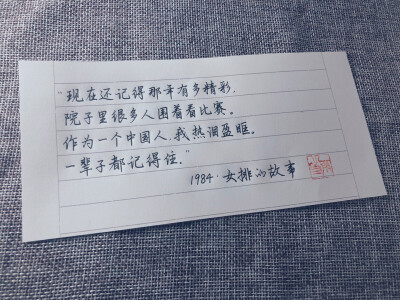 “现在还记得那年有多精彩.
院子里很多人围着看比赛。
作为一个中国人.我热泪盈眶。
一辈子都记得住。”
1984·女排的故事